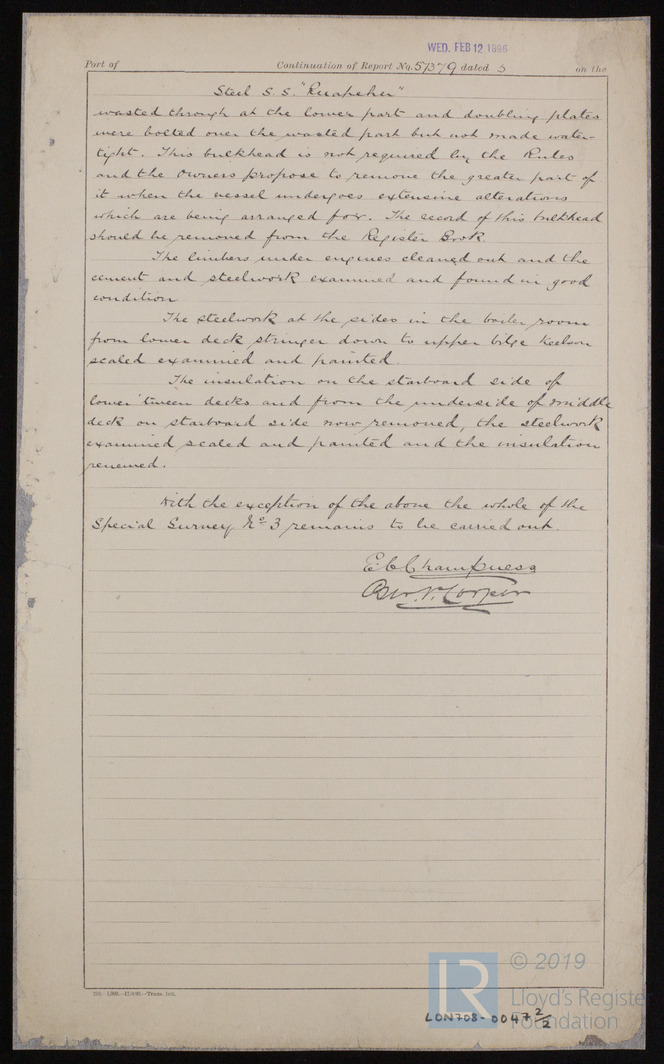 WED. FEB 12 1896
Port of Continuation of Report No. 57379 dated 5 on the
Steel S.S. "Ruapehu"
wasted through at the lower part and doubling plates
were bolted over the wasted part but not made water-
tight. This bulkhead is not required by the Rules
and the Owners propose to remove the greater part of
it when the vessel undergoes extensive alterations
which are being arranged for. The record of this bulkhead
should be removed from the Register Book
The limbers under engines cleaned out and the
cement and steelwork examined and found in good
condition
The steelwork at the sides in the boiler room
from lower deck stringer down to upper bilge keelson
scaled examined and painted.
The insulation on the starboard side of
lower 'tween decks and from the underside of middle
deck on starboard side now removed, the steelwork
examined scaled and painted and the insulation
renewed.
With the exception of the above the whole of the
Special Survey No 3 remains to be carried out.
E C Champness
© 2019
Lloyd's Register
Foundation
LON708-0047 2/2